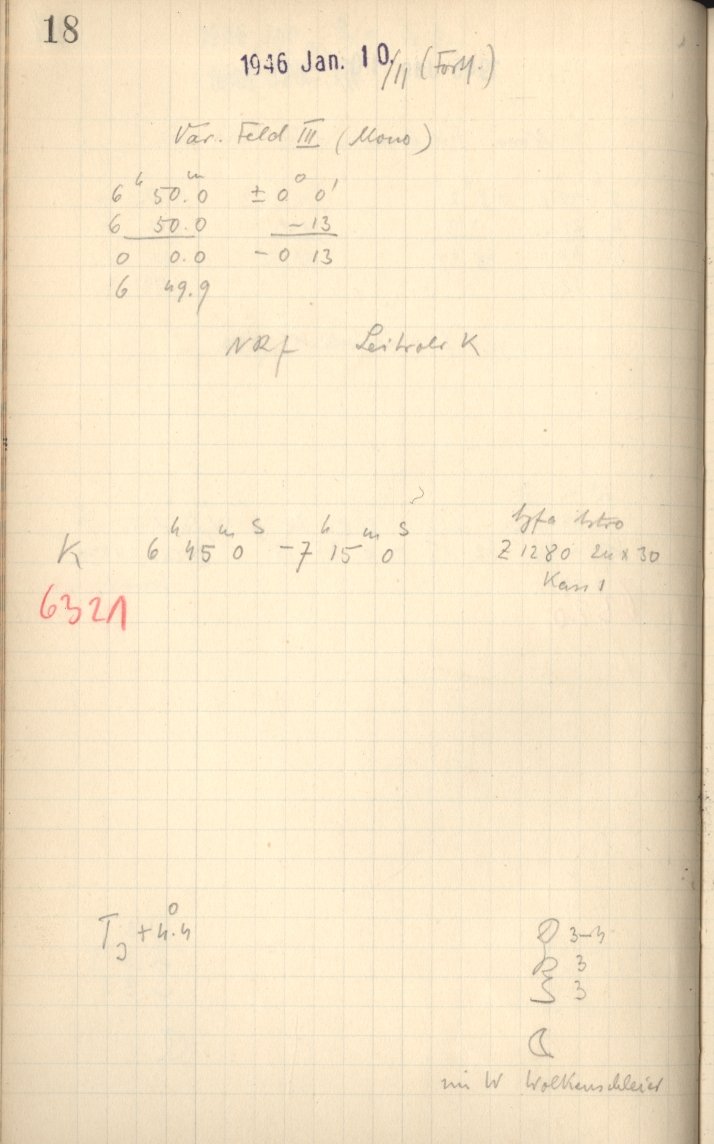 18
1946 Jan. 10/11 (Forts.)
Var. Feld III (Mono)
6ʰ 50.0ᵐ ±0° 0'
6 50.0 -13
0 0.0 -0 13
6 49.9
Leitrohr K
K 6ʰ 45ᵐ 0ˢ - 7ʰ 15ᵐ 0ˢ
Agfa Astro
Z1280 24x30
Kass 1
6321
T₃ +4.4°
3-4
3
3
im W Wolkenschleier